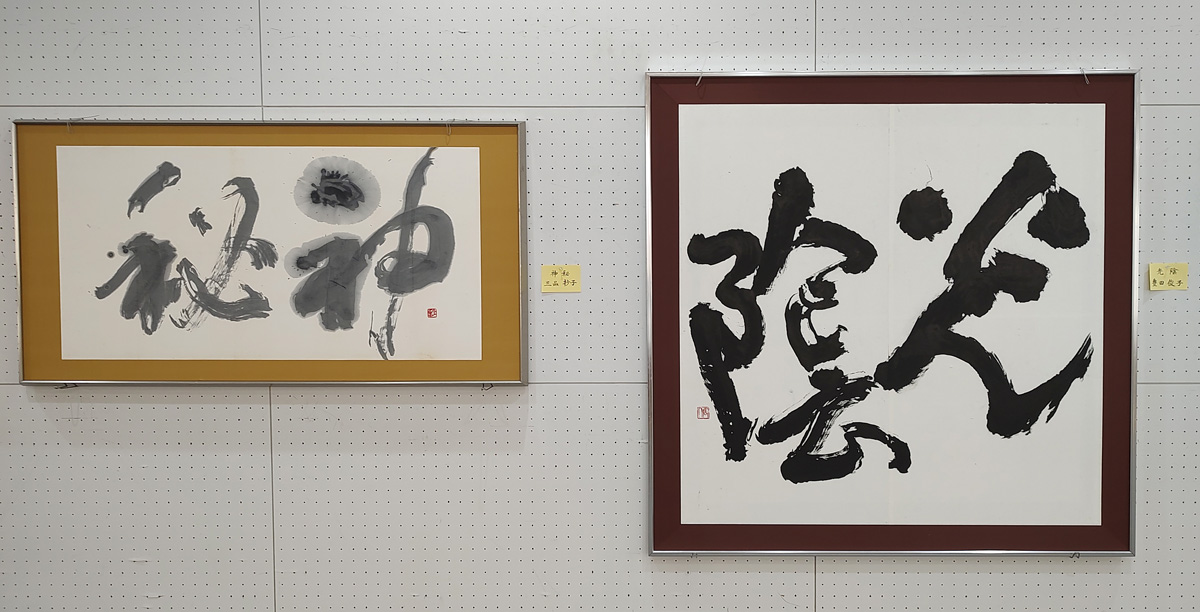 神秘
神 秘
三品 抄子
光陰
光 陰
豊田 俊子